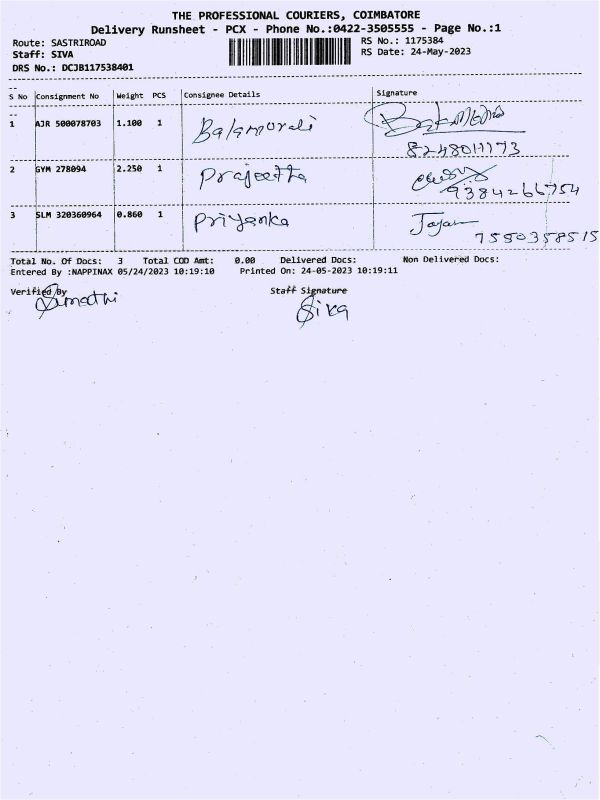 THE PROFESSIONAL COURIERS, COIMBATORE
Delivery Runsheet - PCX - Phone No.:0422-3505555 - Page No.:1
Route: SASTRIROAD RS No.: 1175384
Staff: SIVA RS Date: 24-May-2023
DRS No.: DCJB117538401
S No Consignment No Weight PCS Consignee Details Signature
1 AJR 500078703 1.100 1 Balamurali
8248011173
2 GYM 278094 2.250 1 Prajeetha
9384266754
3 SLM 320360964 0.860 1 Priyanka
7550358515
Total No. Of Docs: 3 Total COD Amt: 0.00 Delivered Docs: Non Delivered Docs:
Entered By :NAPPINAX 05/24/2023 10:19:10 Printed On: 24-05-2023 10:19:11
Verified By Staff Signature
Sumathi Siva